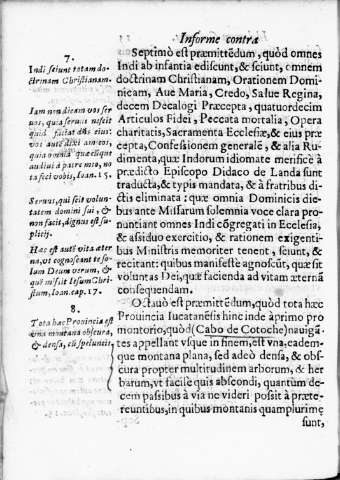 Informe contra
7.
Indi sciunt totam do
ctrinam Christianam.
Iam non dicam vos ser
vos, quia servus nescit
quid faciat dñs eius:
vos autē dixi amicos,
quia omnia quæcũque
audivi à patre meo, no
ta feci vobis, Ioan. 15.
Servus, qui scit volun-
tatem domini sui, &
non facit, dignus est su-
plicij.
Hæc est autē vita æter
na, vt cognoscant te so-
lum Deum verum, &
què misisti Iesum Chri-
stum, Ioan. cap. 17.
8.
Tota hæc Provincia est
vna montana obscura,
& densa, cũ speluncis,
Septimò est præmittēdum, quòd omnes
Indi ab infantia ediscunt, & sciunt, omnem
doctrinam Christianam, Orationem Domi-
nicam, Aue Maria, Credo, Salue Regina,
decem Decalogi Præcepta, quatuordecim
Articulos Fidei, Peccata mortalia, Opera
charitatis, Sacramenta Ecclesiæ, & eius præ
cepta, Confessionem generalē, & alia Ru-
dimenta, quæ Indorum idiomate merificè à
prædicto Episcopo Didaco de Landa sunt
traducta, & typis mandata, & à fratribus di-
ctis eliminata: quæ omnia Dominicis die-
bus ante Missarum solemnia voce clara pro-
nuntiant omnes Indi cōgregati in Ecclesia,
& assiduo exercitio, & rationem exigenti-
bus Ministris memoriter tenent, sciunt, &
recitant: quibus manifestè agnoscũt, quæ sit
voluntas Dei, quæ facienda ad vitam æternã
consequendam.
Octauò est præmittēdum, quòd tota hæc
Prouincia Iucatanēsis hinc inde à primo pro
montorio, quòd (Cabo de Cotoche) nauigã-
tes appellant vsque in finem, est vna, eadem-
que montana plana, sed adeò densa, & obs-
cura propter multitudinem arborum, & her
barum, vt facilè quis abscondi, quantum de-
cem passibus à via ne videri possit à præte-
reuntibus, in quibus montanis quamplurimę
sunt,